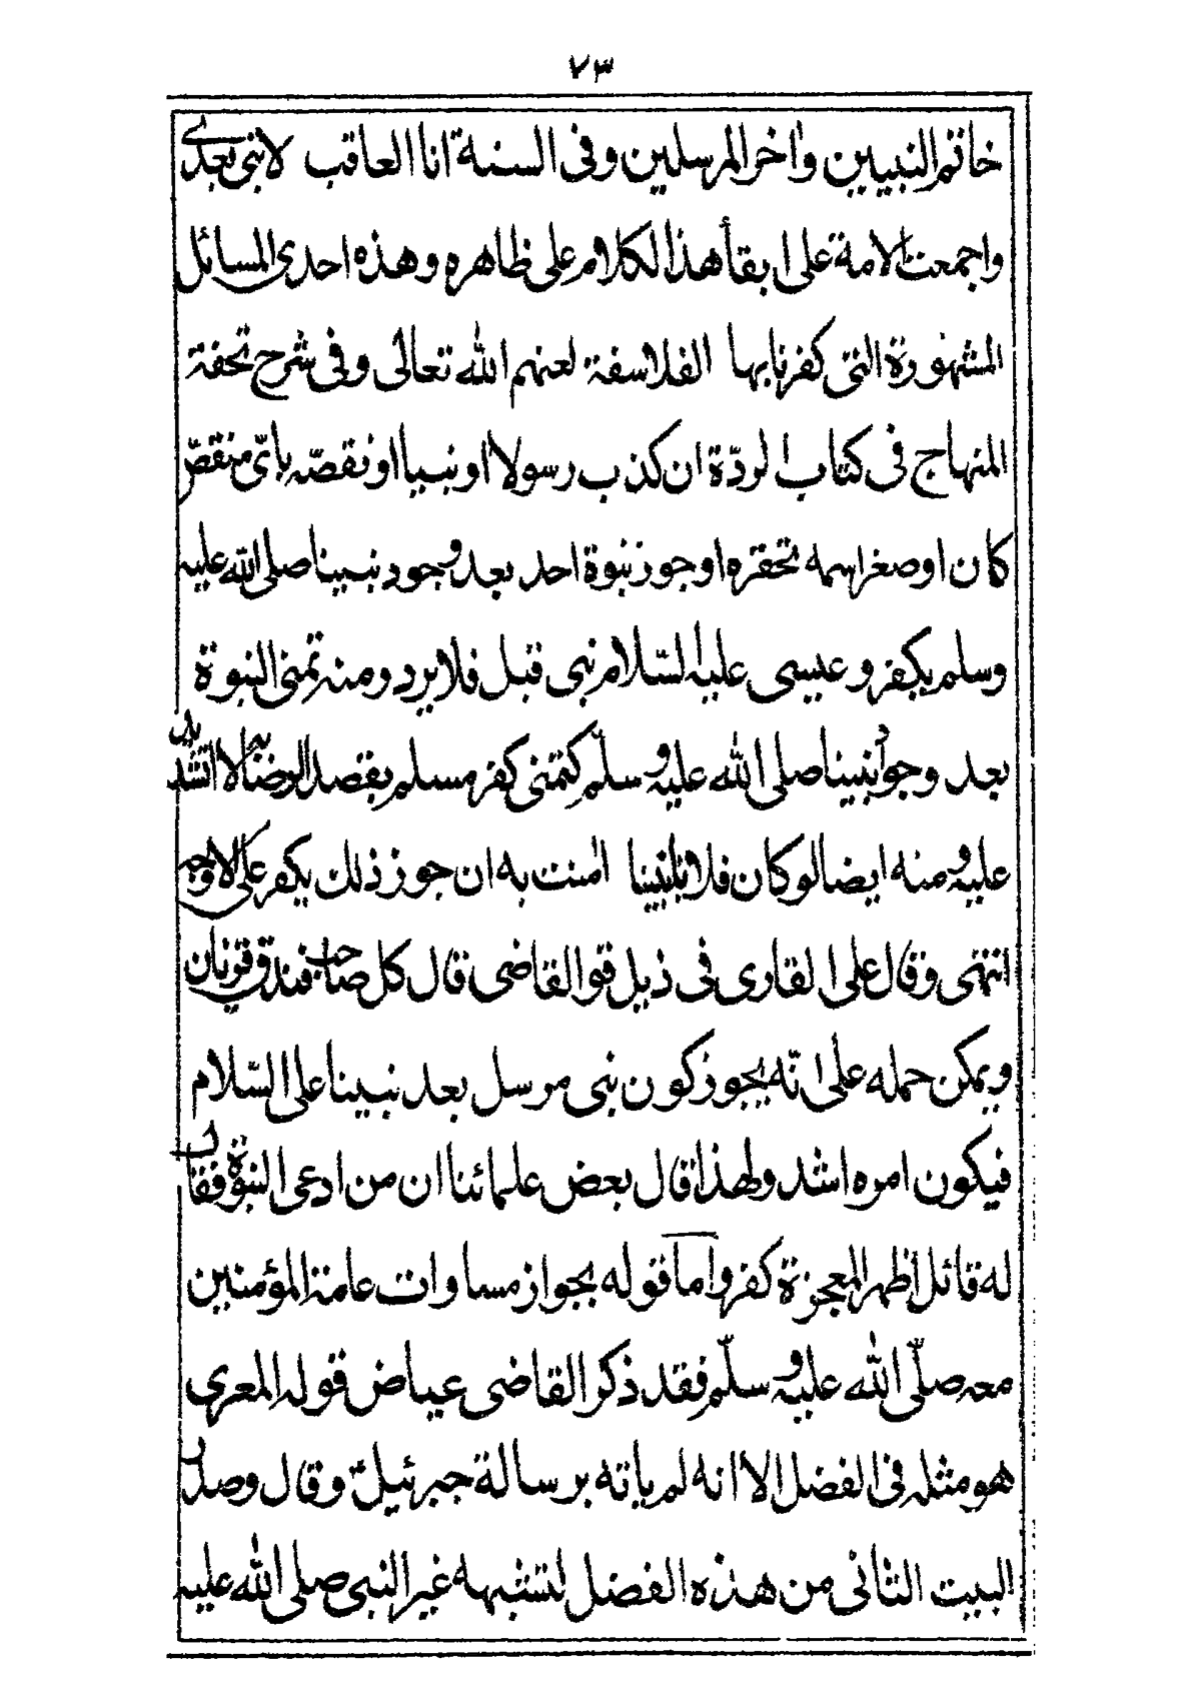 ٧٣
خاتم النبيين واٰخر المرسلين وفى السنة انا العاقب لا نبى بعدى
واجمعت الامة على ابقأ هذا الكلام على ظاهره وهذه احدى المسائل
المشهورة التى كفرنا بها الفلاسفة لعنهم الله تعالى وفى شرح تحفة
المنهاج فى كتاب الردّة ان كذب رسولا او نبيا او نقصّه باىّ منقصّ
كان او صغر اسمه تحقره او جوز نبوة احد بعد وجود نبينا صلى الله عليه
وسلم يكفر و عيسى عليه السّلام نبى قبل فلا يرد ومنه تمنى النبوة
بعد وجود نبينا صلى الله عليه وسلّم كتمنى كفر مسلم بقصد الرضا به لا التشديد
عليه ومنه ايضا لو كان فلان نبينا اٰمنت به ان جوز ذلك يكفر على الاوجه
انتهى وقال على القارى فى ذيل قوا القاضى قال كل صاحب فندق
ويمكن حمله على انّه يجوز كون نبى مرسل بعد نبينا على السّلام
فيكون امره اشد ولهذا قال بعض علمائنا ان من ادعى النبوة فقال
له قائل اظهر المعجزة كفر واما قوله بجواز مساوات عامة المؤمنين
معه صلّى الله عليه وسلّم فقد ذكر القاضى عياض قوله المعرى
هو مثله فى الفضل الا انه لم ياته برسالة جبرئيل وقال وصدر
البيت الثانى من هذه الفضل لتشبهه غير النبى صلى الله عليه